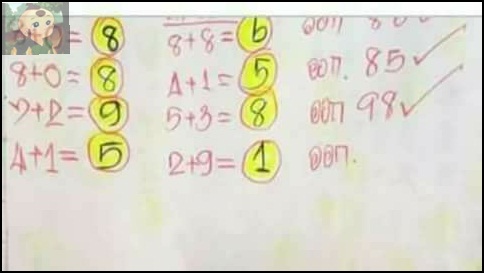 = 8 8+8 = 6 ออก
8+0 = 8 4+1 = 5 ออก. 85 ✓
7+2 = 9 5+3 = 8 ออก 98 ✓
4+1 = 5 2+9 = 1 ออก.